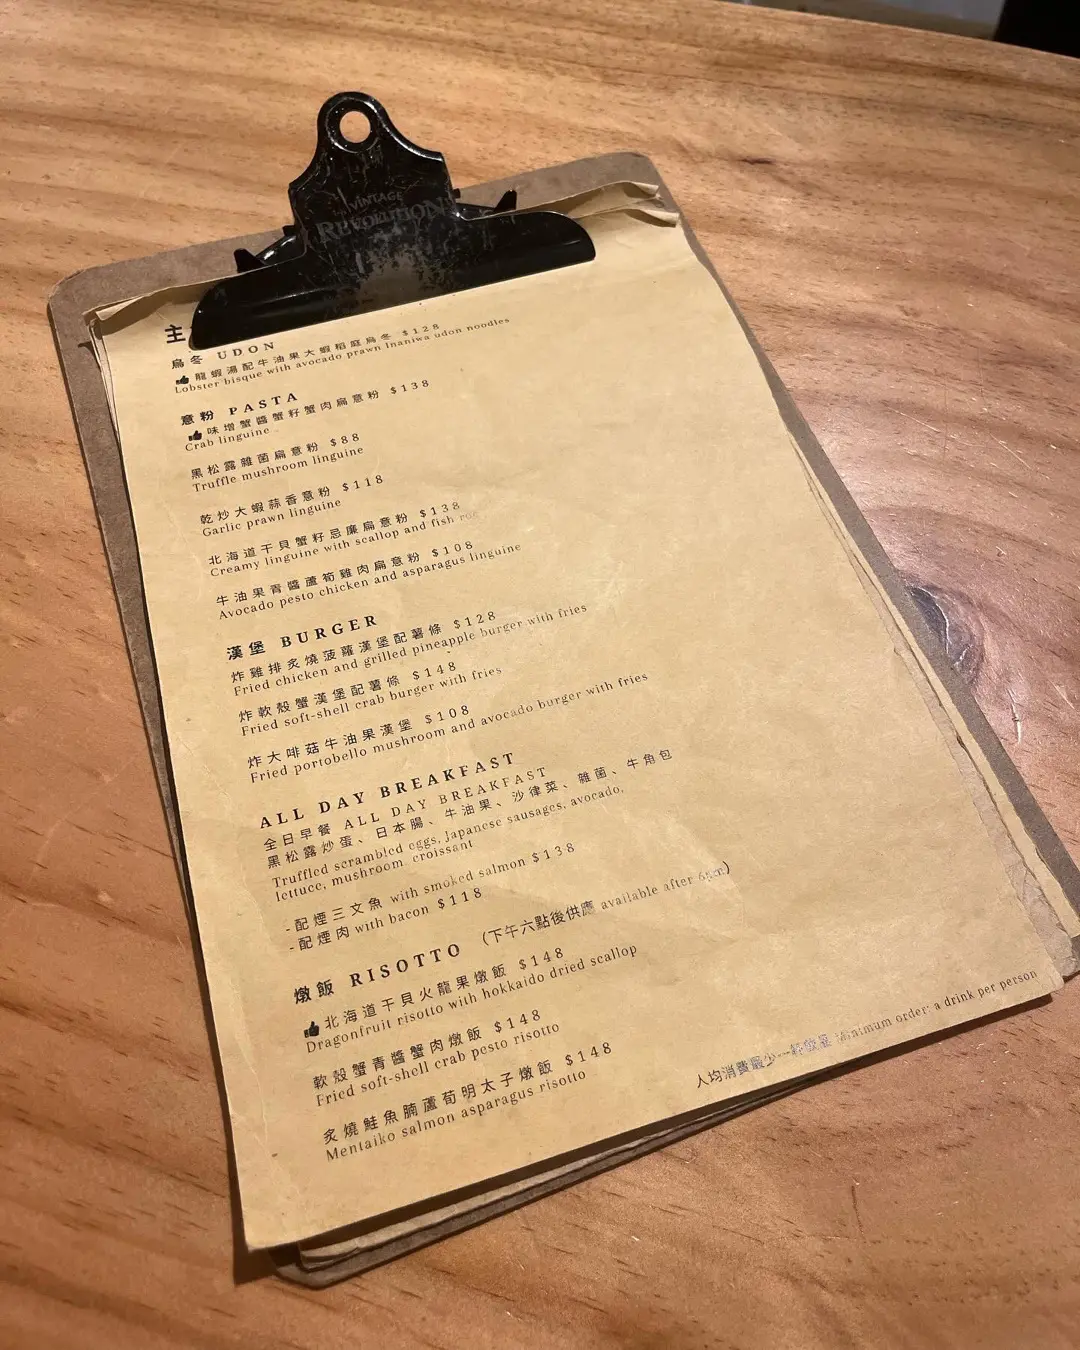 VINTAGE
REVOLUTION
主
烏冬 UDON
龍蝦湯配牛油果大蝦稻庭烏冬 $128
Lobster bisque with avocado prawn Inaniwa udon noodles
意粉 PASTA
味增蟹醬蟹籽蟹肉扁意粉 $138
Crab linguine
黑松露雜菌扁意粉 $88
Truffle mushroom linguine
乾炒大蝦蒜香意粉 $118
Garlic prawn linguine
北海道干貝蟹籽忌廉扁意粉 $138
Creamy linguine with scallop and fish roe
牛油果青醬蘆筍雞肉扁意粉 $108
Avocado pesto chicken and asparagus linguine
漢堡 BURGER
炸雞排炙燒菠蘿漢堡配薯條 $128
Fried chicken and grilled pineapple burger with fries
炸軟殼蟹漢堡配薯條 $148
Fried soft-shell crab burger with fries
炸大啡菇牛油果漢堡 $108
Fried portobello mushroom and avocado burger with fries
ALL DAY BREAKFAST
全日早餐 ALL DAY BREAKFAST
黑松露炒蛋、日本腸、牛油果、沙律菜、雜菌、牛角包
Truffled scrambled eggs, Japanese sausages, avocado,
lettuce, mushroom, croissant
- 配煙三文魚 with smoked salmon $138
- 配煙肉 with bacon $118
燉飯 RISOTTO （下午六點後供應 available after 6pm）
北海道干貝火龍果燉飯 $148
Dragonfruit risotto with hokkaido dried scallop
軟殼蟹青醬蟹肉燉飯 $148
Fried soft-shell crab pesto risotto
炙燒鮭魚腩蘆荀明太子燉飯 $148
Mentaiko salmon asparagus risotto
人均消費最少一杯飲品 Minimum order: a drink per person